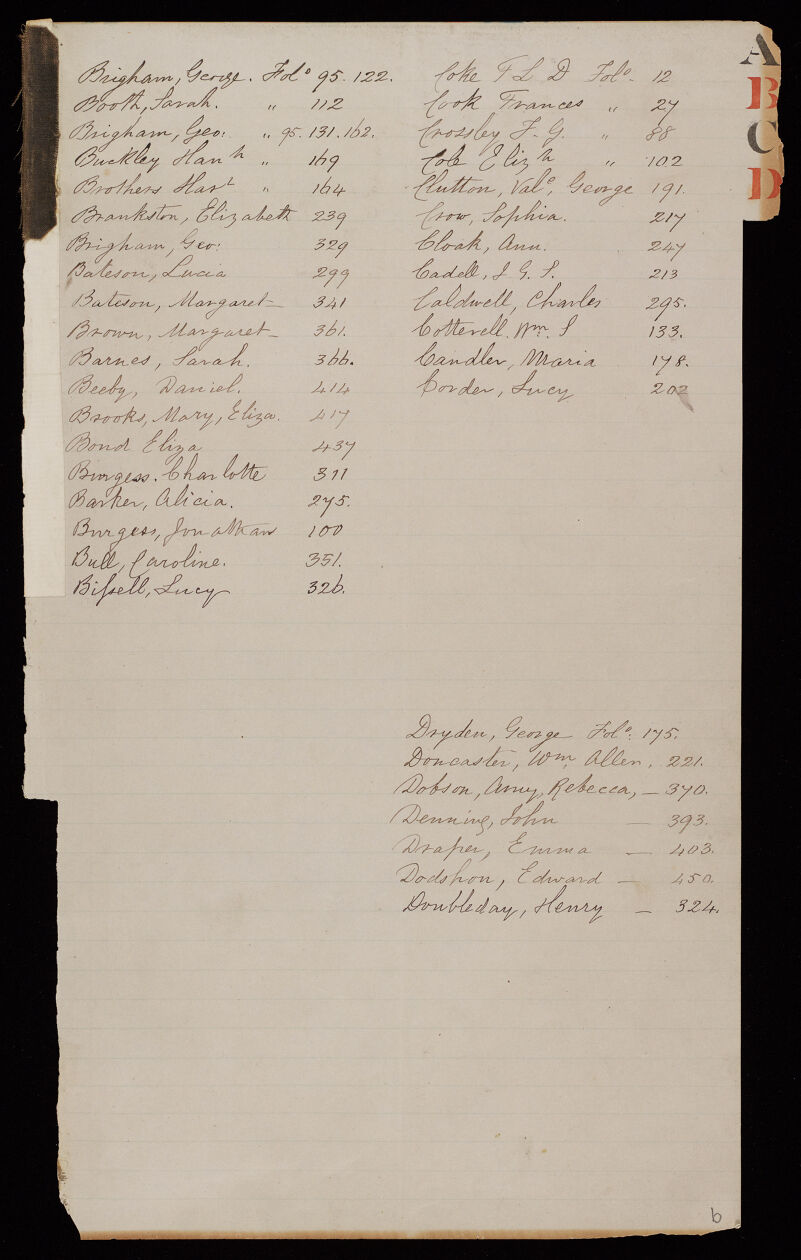 Brigham, George. Folo 95. 122.
Booth, Sarah. " 112
Brigham, Geo: " 95. 131. 162.
Buckley Hanh " 169
Brothers Hart " 164
Brankston, Elizabeth 239
Brigham, Geo: 329
Bateson, Lucia 299
Bateson, Margaret 341
Brown, Margaret 361.
Barnes, Sarah. 366.
Beeby, Daniel. 414
Brooks, Mary, Eliza. 417
Bond Eliza 437
Burgess. Charlotte 311
Barker, Alicia. 275.
Burgess, Jonathan 100
Bull, Caroline. 351.
Bissell, Lucy 326.
Coke F L D Folo. 12
Cook Frances " 27
Crossley F. G. " 88
Cole Elizh " 102
Clutton, Vale, George 191.
Crow, Sophia. 217
Cloak, Ann. 247
Cadell, J G. S. 213
Caldwell, Charles 295.
Cotterell. Wm. S 133.
Candler, Maria 178.
Corder, Lucy 202
Dryden, George Folo: 175.
Doncaster, Wm Allen. 221.
Dobson, Amy, Rebecca, — 370.
Denning, John — 393.
Draper, Emma — 403.
Dodshon, Edward — 450.
Doubleday, Henry — 324.
A
B
C
D
b